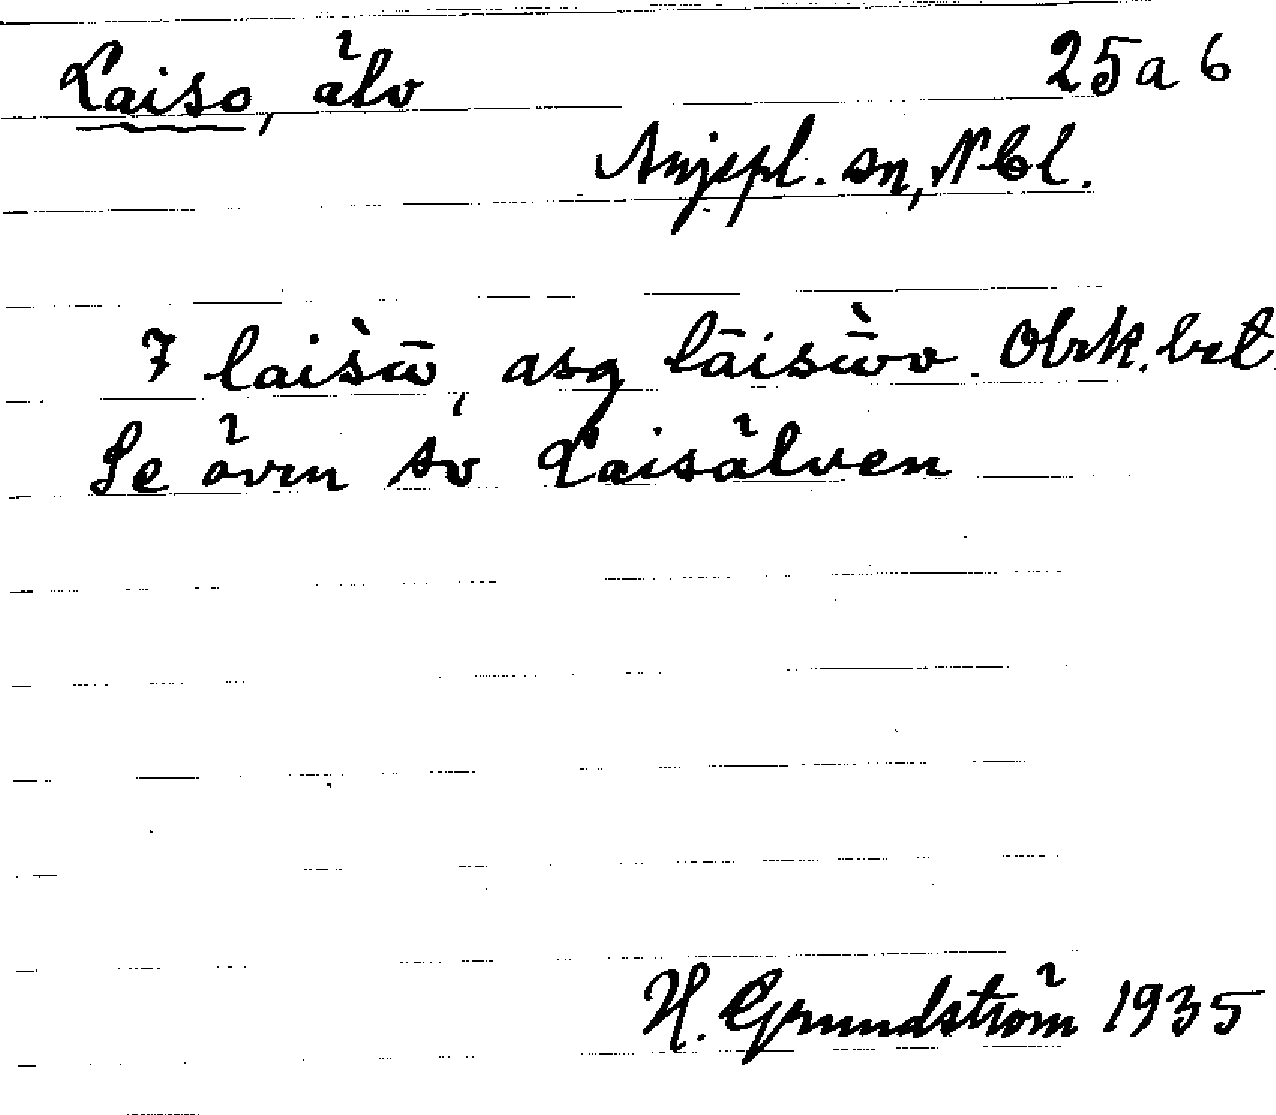 Laiso, älv 25 a 6
Arjepl. sn, Nbl.
7 laisω̄̀, asg lāisω̄̀v. Obek. bet.
Se även sv Laisälven
H. Grundström 1935